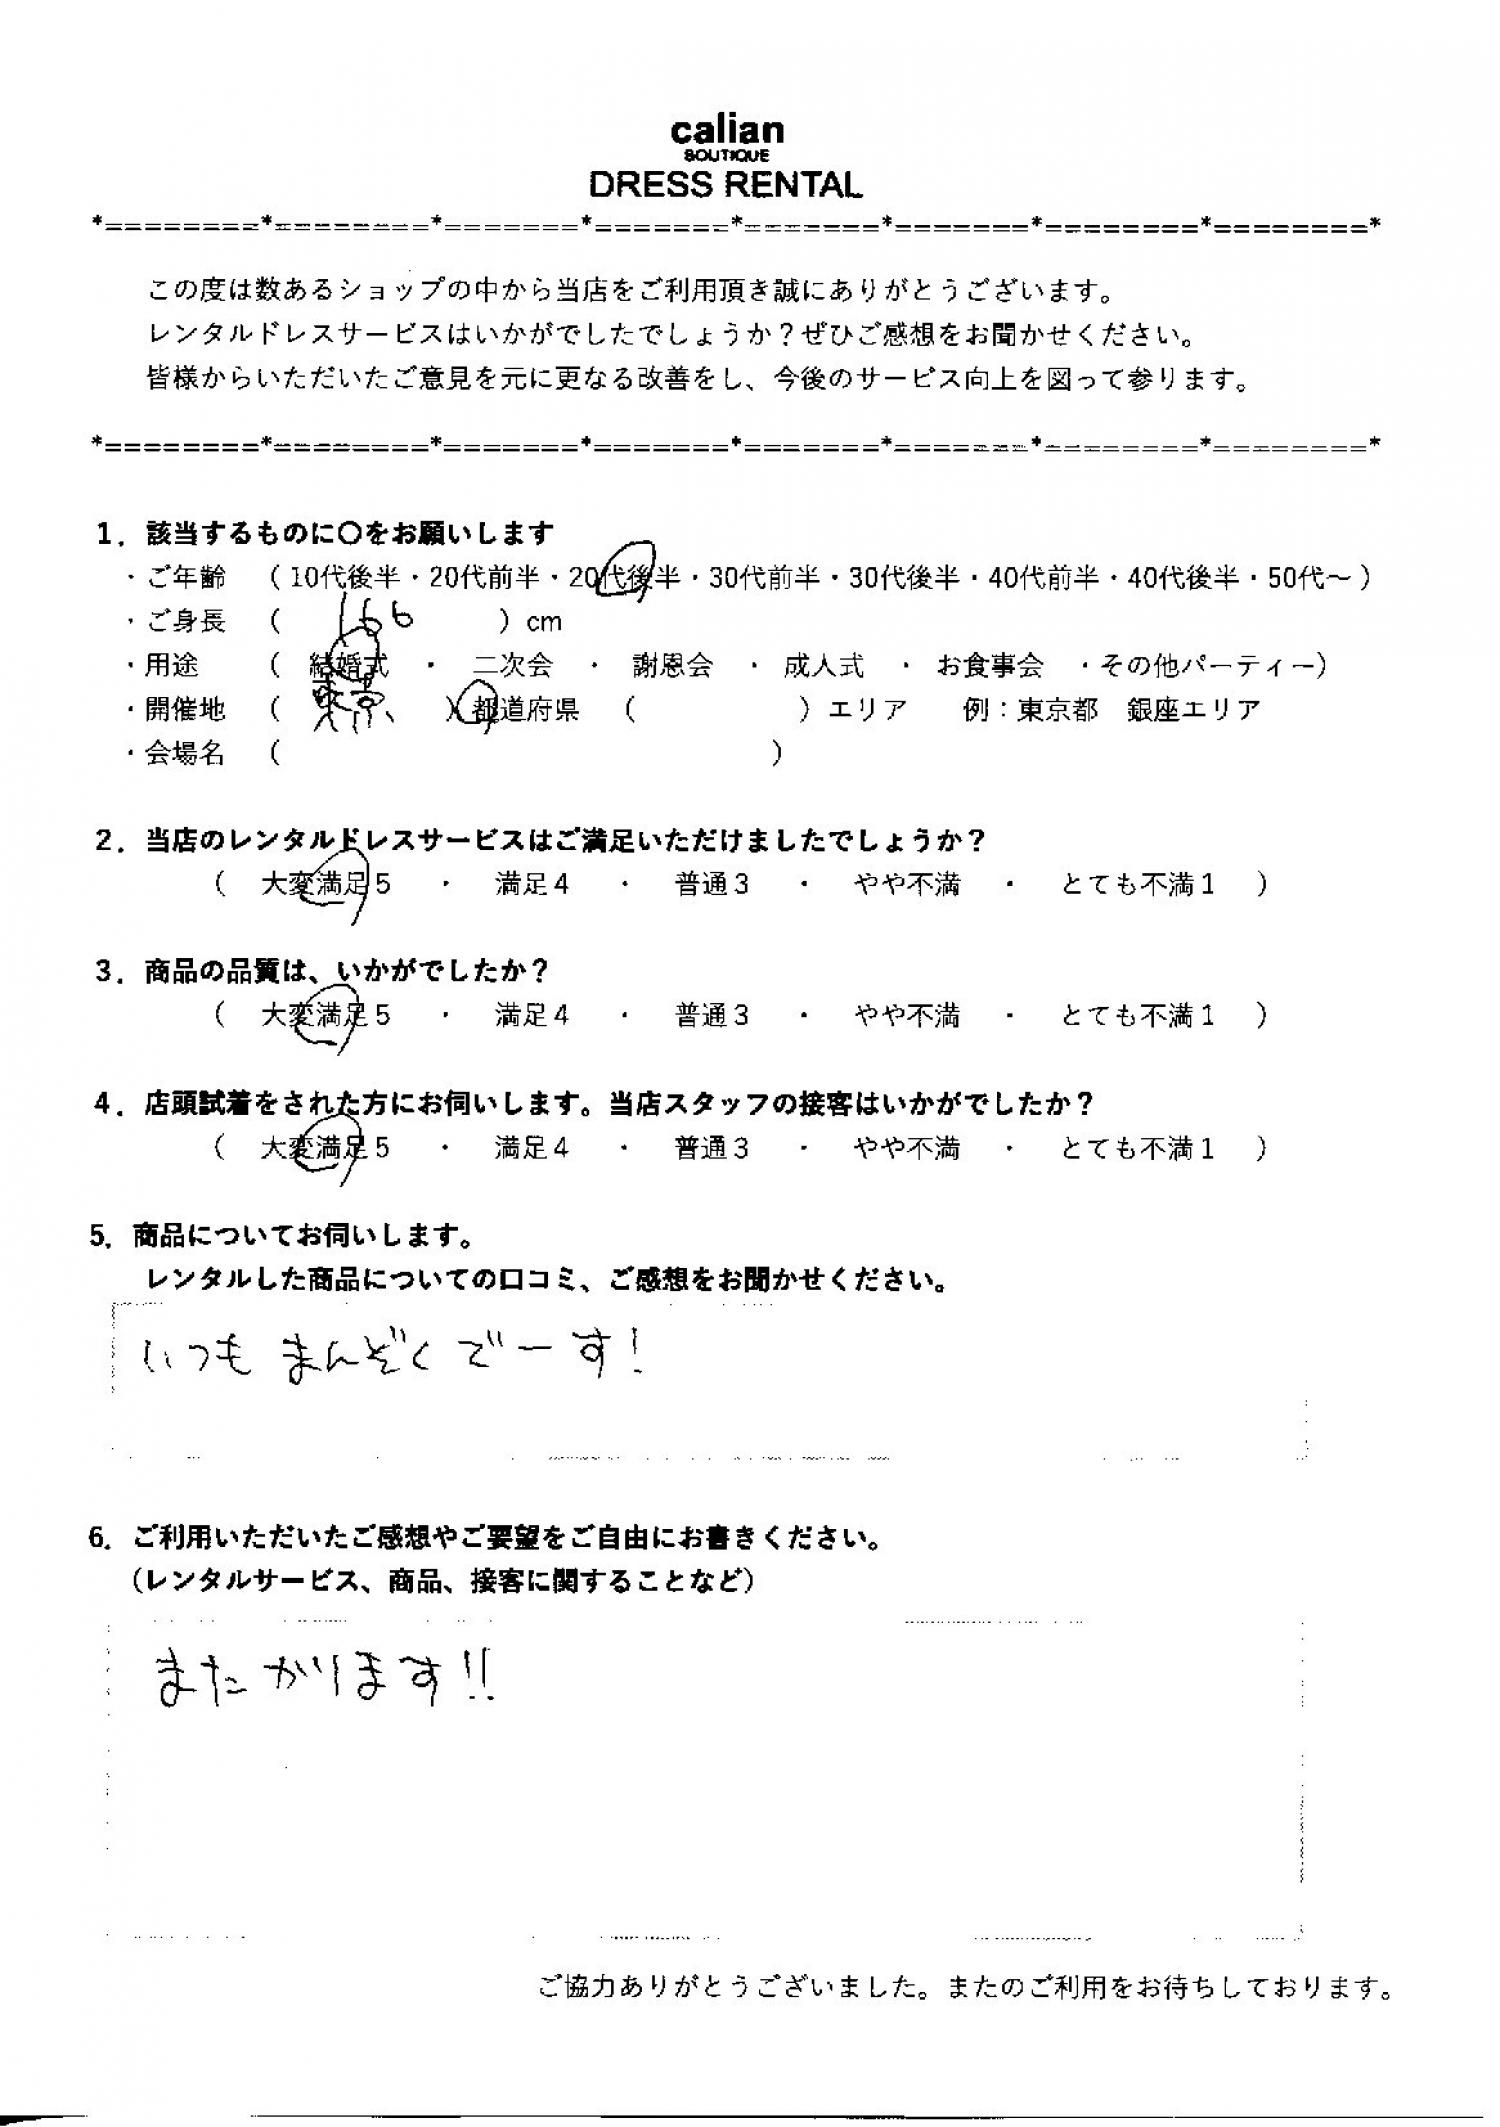 calian
BOUTIQUE
DRESS RENTAL
*========*========*=======*=======*=======*=======*========*========*
この度は数あるショップの中から当店をご利用頂き誠にありがとうございます。
レンタルドレスサービスはいかがでしたでしょうか？ぜひご感想をお聞かせください。
皆様からいただいたご意見を元に更なる改善をし、今後のサービス向上を図って参ります。
*========*========*=======*=======*=======*=======*========*========*
1．該当するものに〇をお願いします
・ご年齢 （ 10代後半・20代前半・20代後半・30代前半・30代後半・40代前半・40代後半・50代～ ）
・ご身長 （ 166 ）cm
・用途 （ 結婚式 ・ 二次会 ・ 謝恩会 ・ 成人式 ・ お食事会 ・その他パーティー）
・開催地 （ 東京 ）都道府県 （ ）エリア 例：東京都 銀座エリア
・会場名 （ ）
2．当店のレンタルドレスサービスはご満足いただけましたでしょうか？
（ 大変満足５ ・ 満足４ ・ 普通３ ・ やや不満 ・ とても不満１ ）
3．商品の品質は、いかがでしたか？
（ 大変満足５ ・ 満足４ ・ 普通３ ・ やや不満 ・ とても不満１ ）
4．店頭試着をされた方にお伺いします。当店スタッフの接客はいかがでしたか？
（ 大変満足５ ・ 満足４ ・ 普通３ ・ やや不満 ・ とても不満１ ）
5．商品についてお伺いします。
レンタルした商品についての口コミ、ご感想をお聞かせください。
いつも まんぞくでーす！
6．ご利用いただいたご感想やご要望をご自由にお書きください。
（レンタルサービス、商品、接客に関することなど）
またかります!!
ご協力ありがとうございました。またのご利用をお待ちしております。